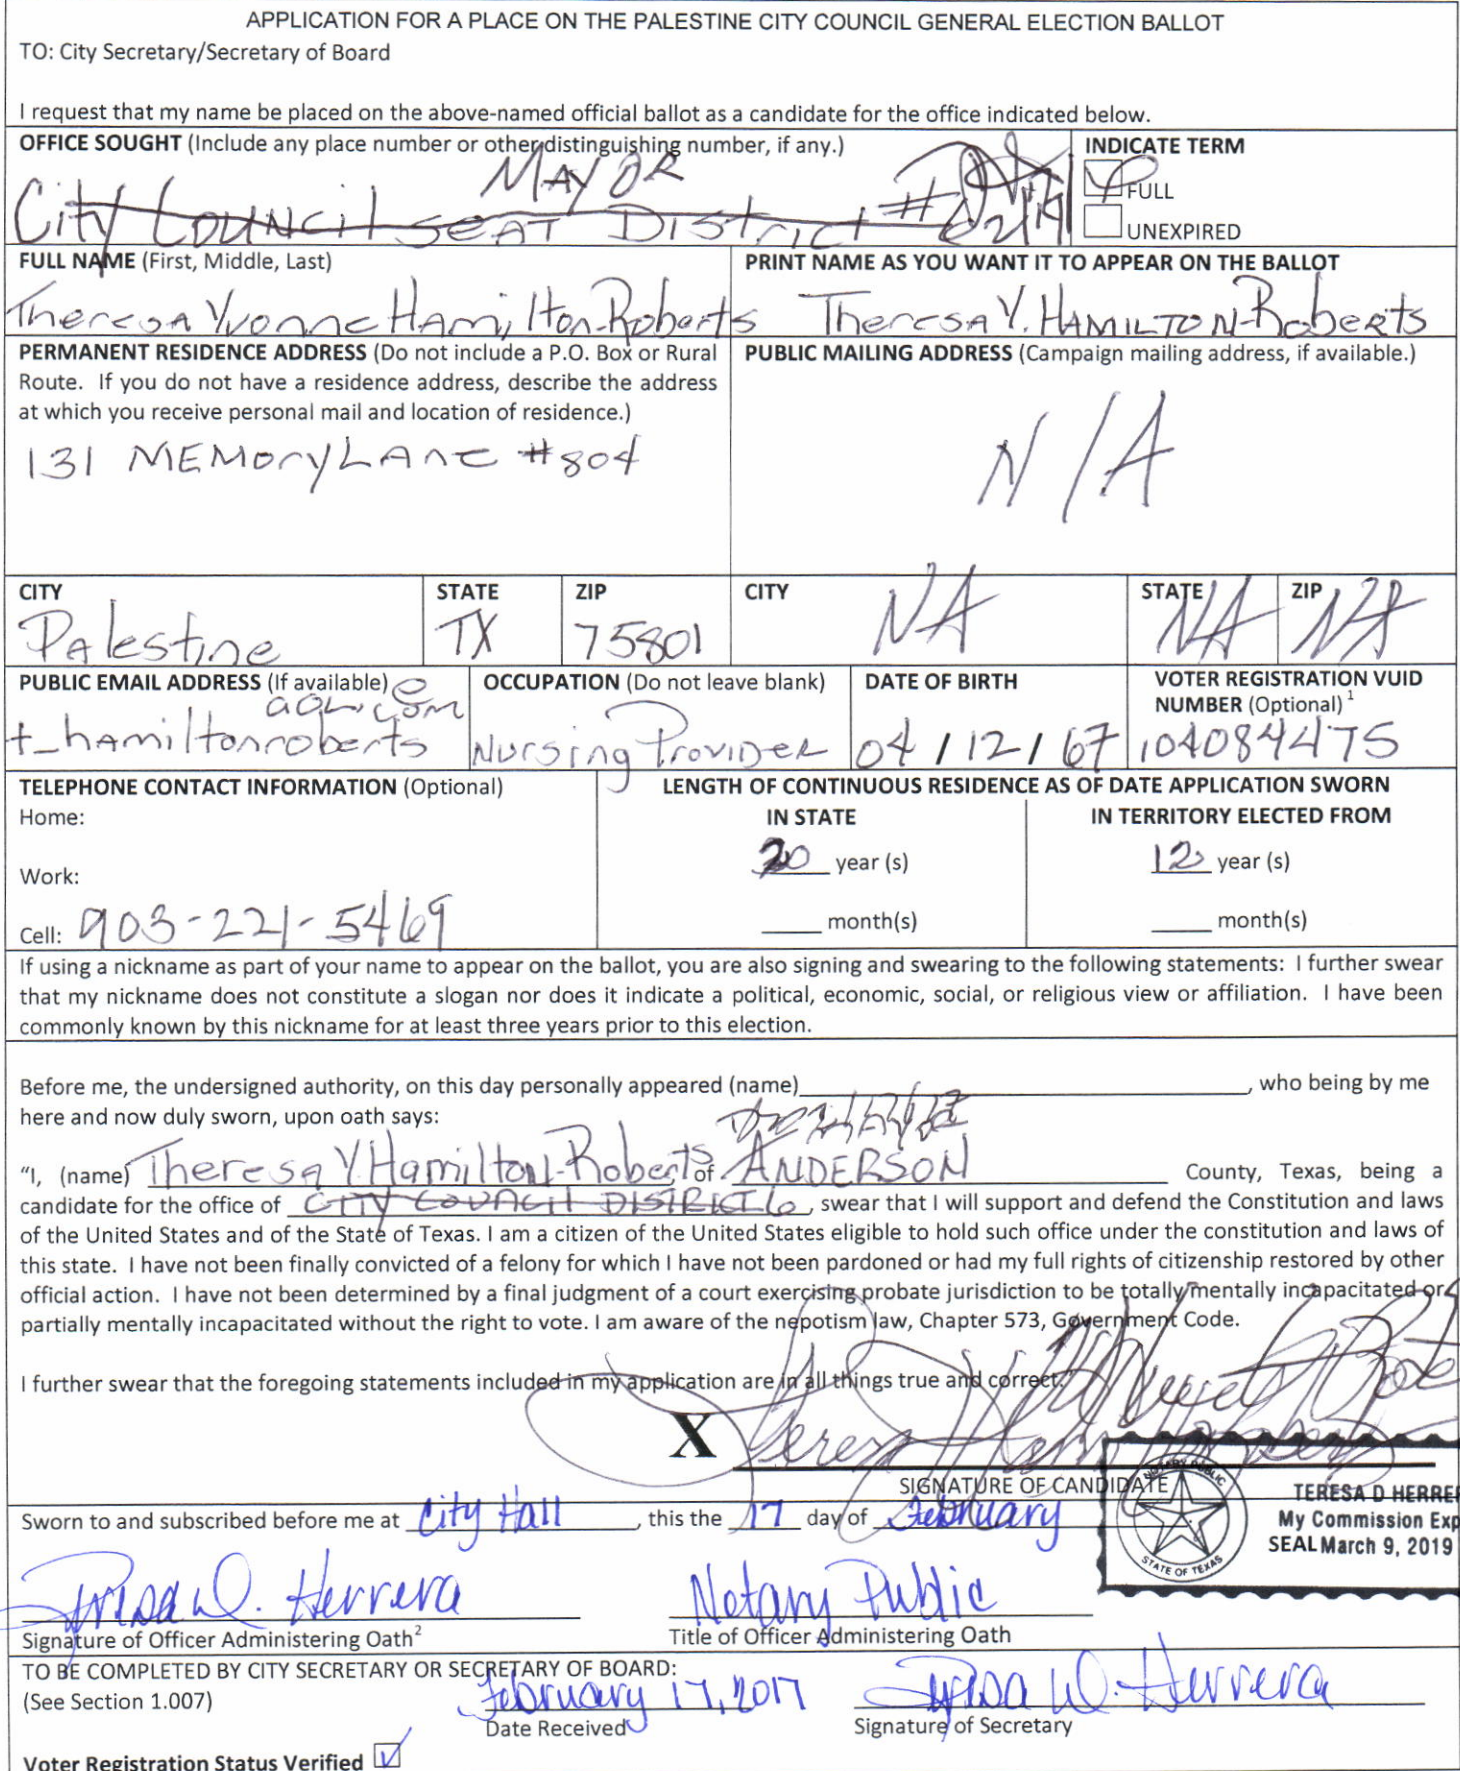 APPLICATION FOR A PLACE ON THE PALESTINE CITY COUNCIL GENERAL ELECTION BALLOT
TO: City Secretary/Secretary of Board
I request that my name be placed on the above-named official ballot as a candidate for the office indicated below.
OFFICE SOUGHT (Include any place number or other distinguishing number, if any.)
MAYOR
City Council SEAT District #
INDICATE TERM
FULL
UNEXPIRED
FULL NAME (First, Middle, Last)
Theresa Yvonne Hamilton-Roberts
PRINT NAME AS YOU WANT IT TO APPEAR ON THE BALLOT
Theresa Y. HAMILTON-Roberts
PERMANENT RESIDENCE ADDRESS (Do not include a P.O. Box or Rural
Route. If you do not have a residence address, describe the address
at which you receive personal mail and location of residence.)
131 MEMory LAne #804
PUBLIC MAILING ADDRESS (Campaign mailing address, if available.)
N/A
CITY
Palestine
STATE
TX
ZIP
75801
CITY
NA
STATE
NA
ZIP
NA
PUBLIC EMAIL ADDRESS (If available) @
aol.com
t_hamiltonroberts
OCCUPATION (Do not leave blank)
Nursing Provider
DATE OF BIRTH
04/12/67
VOTER REGISTRATION VUID
NUMBER (Optional) 1
104084475
TELEPHONE CONTACT INFORMATION (Optional)
Home:
Work:
Cell: 903-221-5469
LENGTH OF CONTINUOUS RESIDENCE AS OF DATE APPLICATION SWORN
IN STATE
20 year (s)
month(s)
IN TERRITORY ELECTED FROM
12 year (s)
month(s)
If using a nickname as part of your name to appear on the ballot, you are also signing and swearing to the following statements: I further swear
that my nickname does not constitute a slogan nor does it indicate a political, economic, social, or religious view or affiliation. I have been
commonly known by this nickname for at least three years prior to this election.
Before me, the undersigned authority, on this day personally appeared (name)____, who being by me
here and now duly sworn, upon oath says:
"I, (name) Theresa Y. Hamilton-Roberts, of ANDERSON County, Texas, being a
candidate for the office of CITY COUNCIL DISTRICT 6, swear that I will support and defend the Constitution and laws
of the United States and of the State of Texas. I am a citizen of the United States eligible to hold such office under the constitution and laws of
this state. I have not been finally convicted of a felony for which I have not been pardoned or had my full rights of citizenship restored by other
official action. I have not been determined by a final judgment of a court exercising probate jurisdiction to be totally mentally incapacitated or
partially mentally incapacitated without the right to vote. I am aware of the nepotism law, Chapter 573, Government Code.
I further swear that the foregoing statements included in my application are in all things true and correct."
X
SIGNATURE OF CANDIDATE
NOTARY PUBLIC
STATE OF TEXAS
TERESA D HERRE
My Commission Exp
SEAL March 9, 2019
Sworn to and subscribed before me at City Hall, this the 17 day of February
Teresa D. Herrera
Signature of Officer Administering Oath2
Notary Public
Title of Officer Administering Oath
TO BE COMPLETED BY CITY SECRETARY OR SECRETARY OF BOARD:
(See Section 1.007)
February 17, 2017
Date Received
Teresa D. Herrera
Signature of Secretary
Voter Registration Status Verified